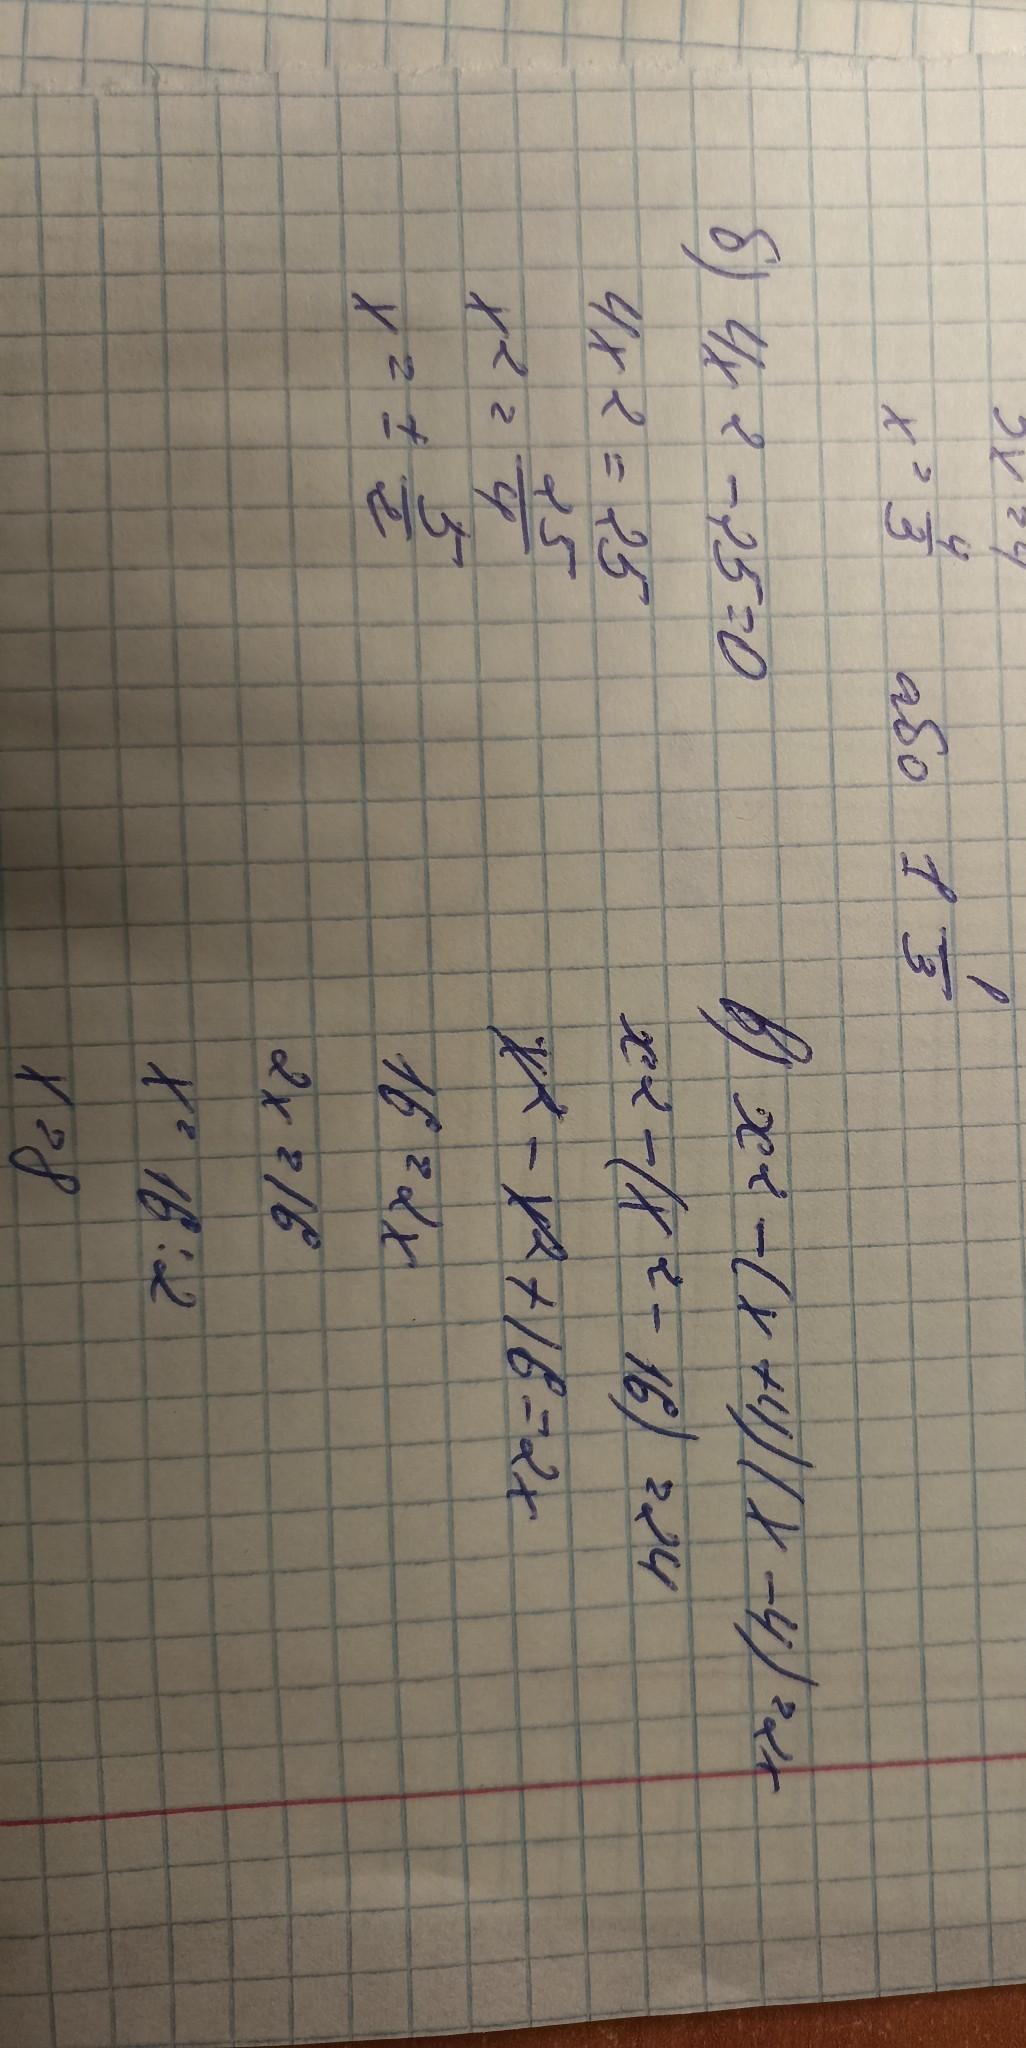 3x = 4
x = 4/3 або 1 1/3
б) 4x² - 25 = 0
4x² = 25
x² = 25/4
x = ± 5/2
в) x² - (x + 4)(x - 4) = 2x
x² - (x² - 16) = 24
x² - x² + 16 = 2x
16 = 2x
2x = 16
x = 16 : 2
x = 8